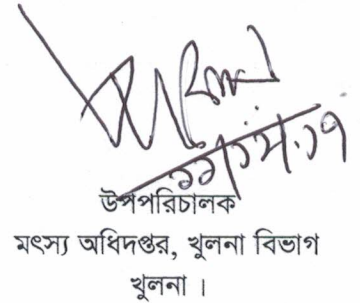 উপপরিচালক
মৎস্য অধিদপ্তর, খুলনা বিভাগ
খুলনা ।